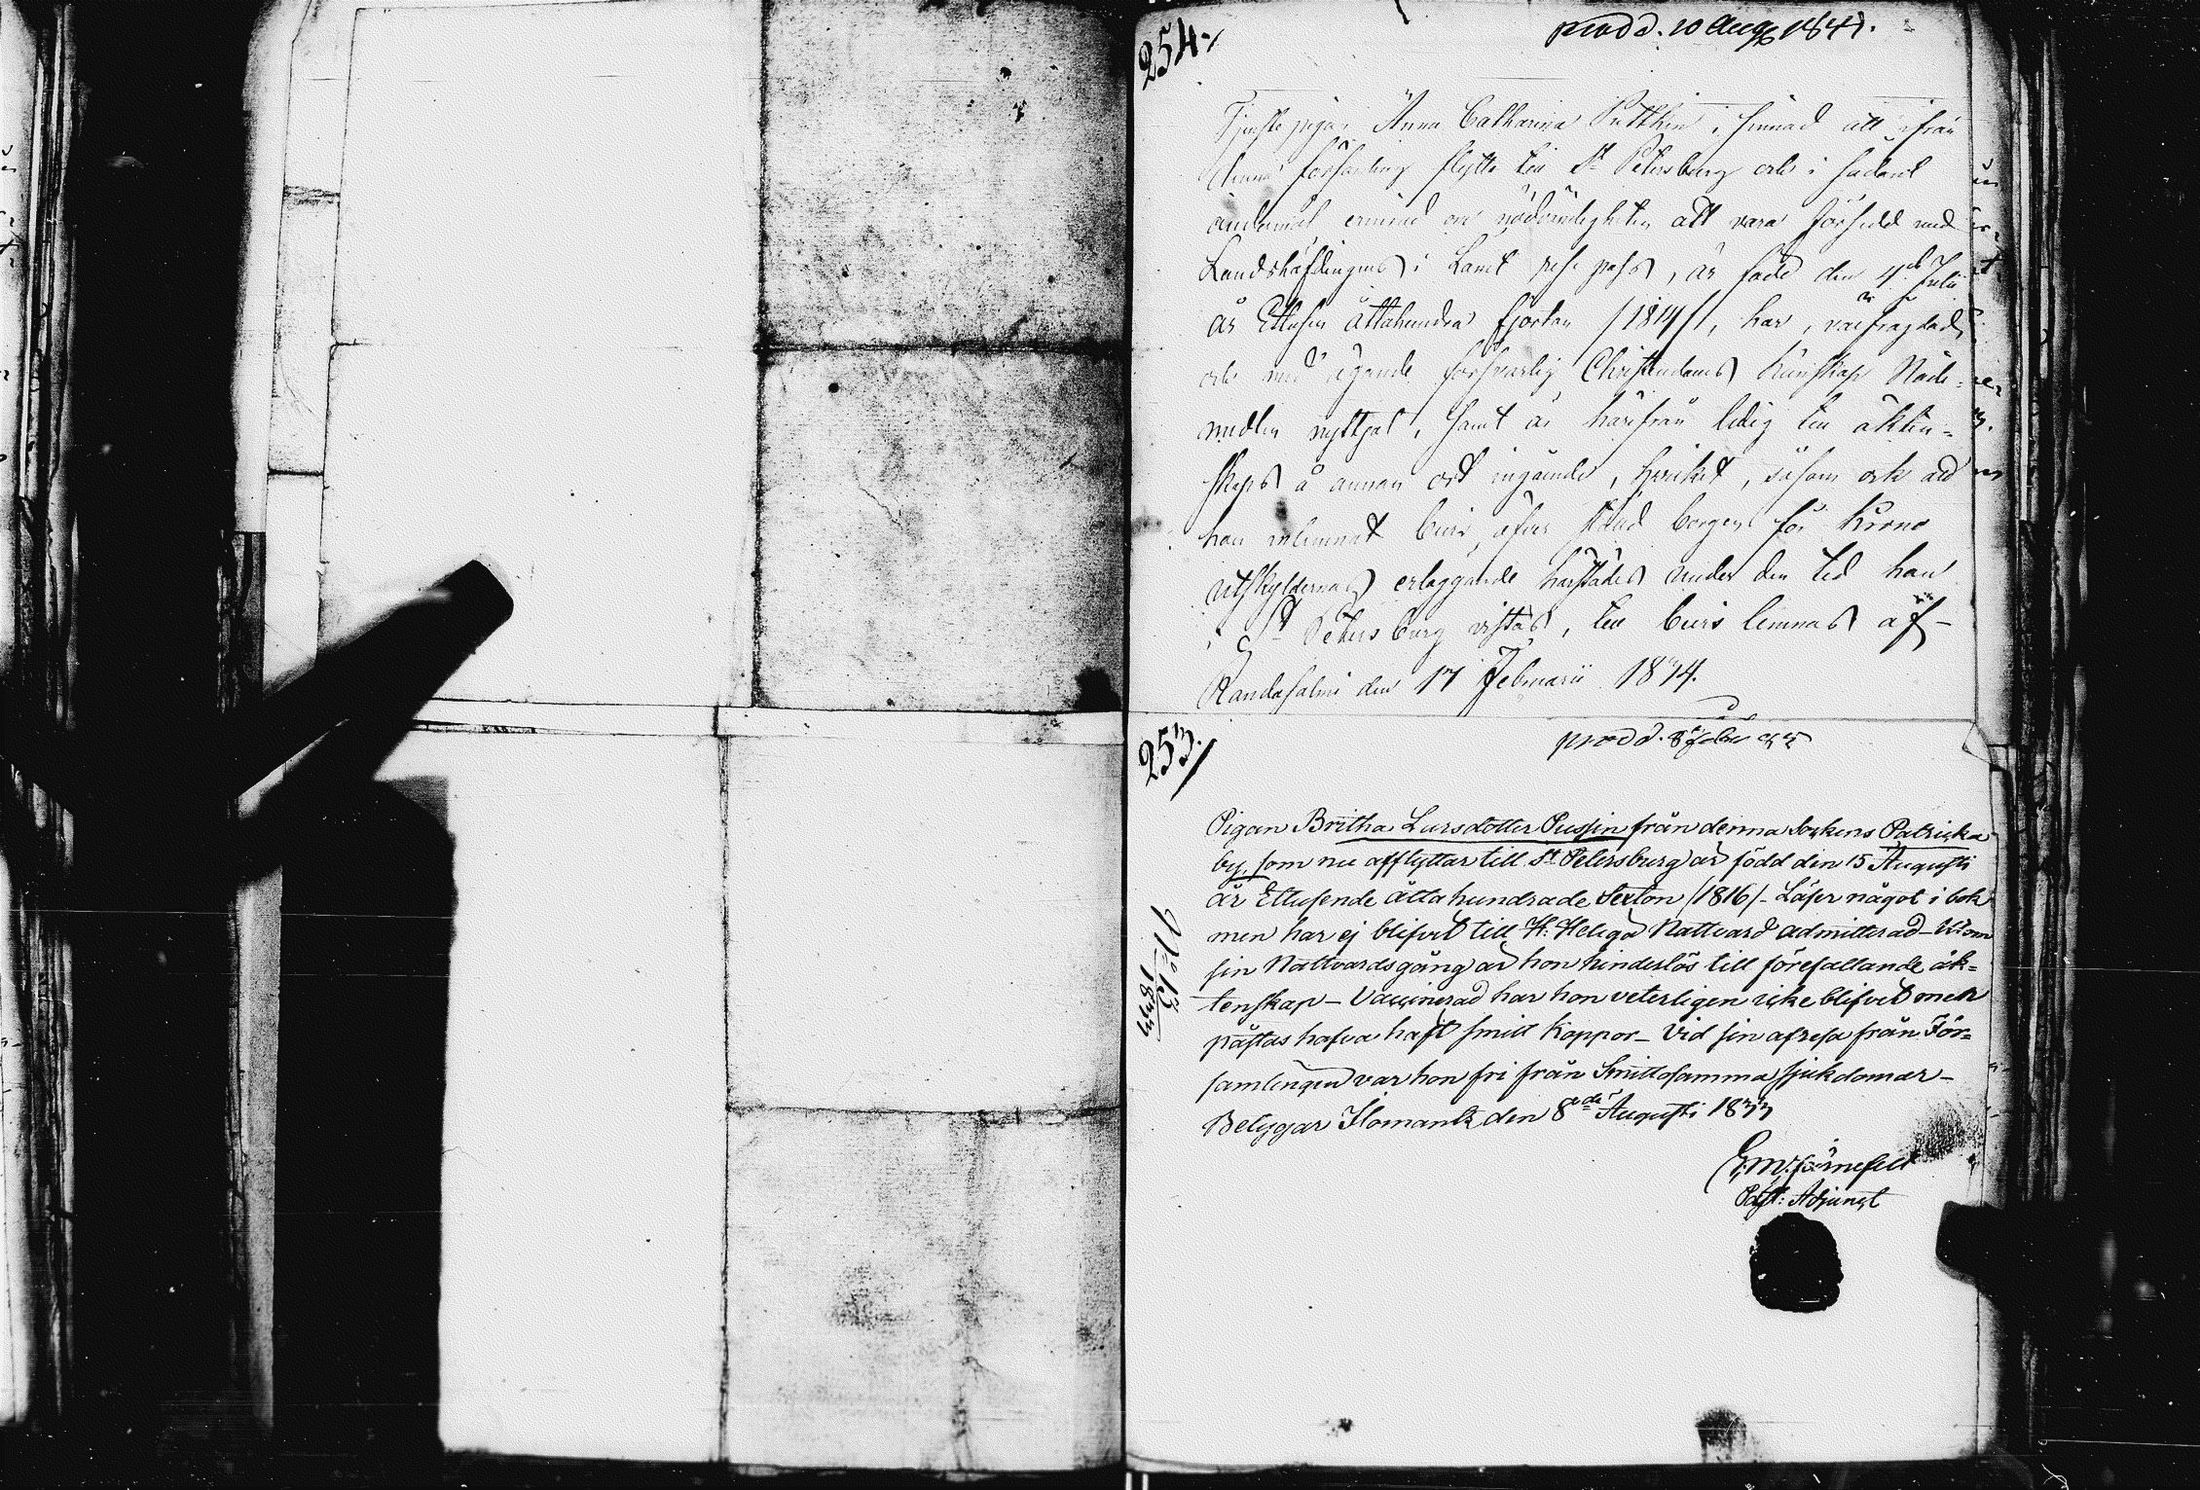 254.
prod d. 10 Aug 1841.
Tjenste pigan Anna Catharina Puttkin, sinnad att ifrån
denna församling flytta till St Petersburg och i sådant
ändamål ernind om nödvändigheten att vara försedd med
Landshöfdingens i Länet rese pass, är född den 4de Julii
år Ettusen Åttahundra fjorton /1814/, har, väl fragdad
och med ägande försvarlig Christendoms kunskap Nåde-
medlen nyttjat, samt är härifrån ledig till äkten-
skaps å annan ort ingående, hvilket, såsom ock att
hon inlemnat bevis öfver ställd borgen för Krono
utskyldernas erläggande härstädes under den tid hon
i St Petersburg vistas, till bevis lemnas af
Randasalmi den 17 Februarii 1834.
253.
prod d. 8 febr
Pigan Britha Larsdotter Pussin från denna Sockens Patricka
by, som nu afflyttar till St Petersburg är född den 15 Augusti
år Ettusende åttahundrade Sexton /1816/ - Läser något i bok
men har ej blifvit till H. Heliga Nattvard admitterad - Utom
sin Nattvardsgång är hon hinderlös till förefallande äk=
tenskap - Vaccinerad har hon veterligen icke blifvit men
påstås hafva haft smitt Koppor - Vid sin afresa från För=
samlingen var hon fri från Smittosamma sjukdomar -
Betygar Ilomants den 8de Augusti 1833
G: M: Järnefelt
Past: Adjunct